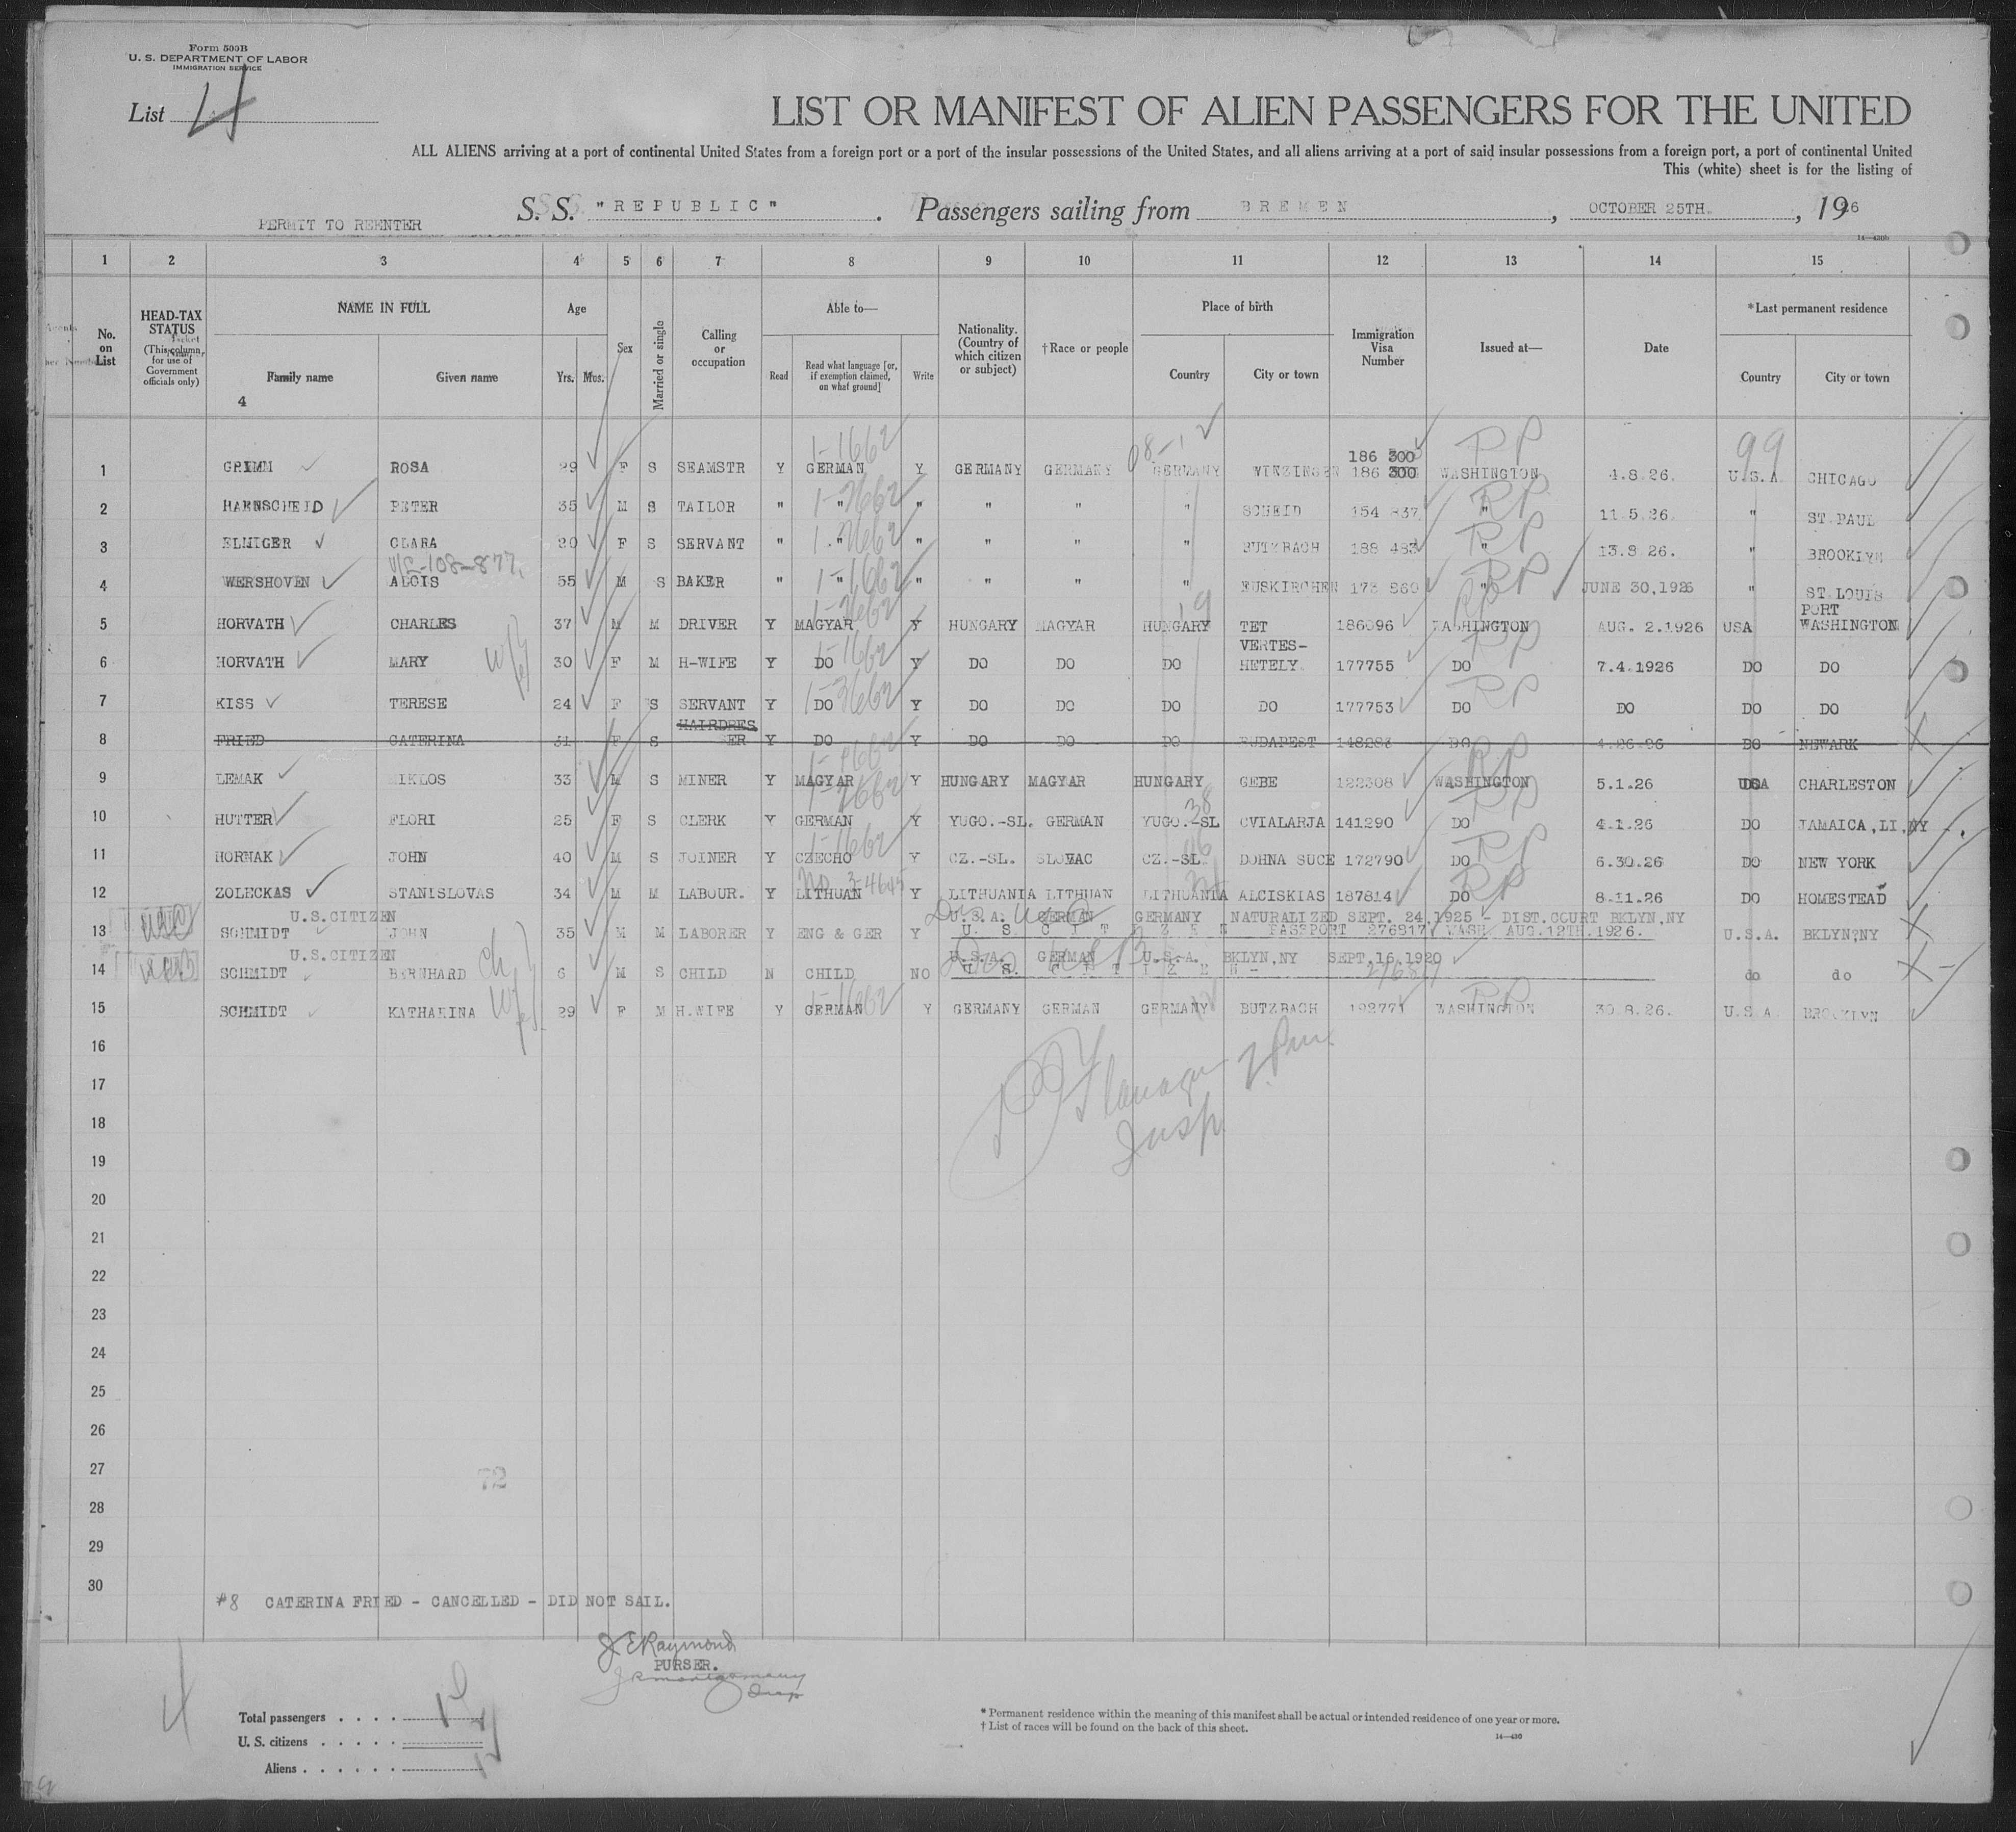 Form 500B
U. S. DEPARTMENT OF LABOR
IMMIGRATION SERVICE
List 4
LIST OR MANIFEST OF ALIEN PASSENGERS FOR THE UNITED
ALL ALIENS arriving at a port of continental United States from a foreign port or a port of the insular possessions of the United States, and all aliens arriving at a port of said insular possessions from a foreign port, a port of continental United
This (white) sheet is for the listing of
S. S. "REPUBLIC" . Passengers sailing from BREMEN , OCTOBER 25TH. , 1926
PERMIT TO REENTER
14—430b
1 2 3 4 5 6 7 8 9 10 11 12 13 14 15
No. on List
HEAD-TAX STATUS (This column for use of Government officials only)
NAME IN FULL
Family name Given name
4
Age
Yrs. Mos.
Sex
Married or single
Calling or occupation
Able to—
Read Read what language [or, if exemption claimed, on what ground] Write
Nationality. (Country of which citizen or subject)
†Race or people
Place of birth
Country City or town
Immigration Visa Number
Issued at—
Date
*Last permanent residence
Country City or town
08-12 RP 99
186 300
1 GRIMM ROSA 29 F S SEAMSTR Y GERMAN Y GERMANY GERMANY GERMANY WINZINGEN 186 300 WASHINGTON 4.8.26. U.S.A. CHICAGO
2 HAENSCHEID PETER 35 M S TAILOR " " " " " " SCHEID 154 837 " 11.5.26. " ST.PAUL
3 ELMIGER CLARA 20 F S SERVANT " " " " " " BUTZBACH 188 483 " 13.8.26. " BROOKLYN
V/L-108-877,
4 WERSHOVEN ALOIS 55 M S BAKER " " " " " " EUSKIRCHEN 173 860 " JUNE 30,1926 " ST.LOUIS
5 HORVATH CHARLES 37 M M DRIVER Y MAGYAR Y HUNGARY MAGYAR HUNGARY TET 186096 WASHINGTON AUG. 2.1926 USA PORT WASHINGTON
6 HORVATH MARY 30 F M H-WIFE Y DO Y DO DO DO VERTES-HETELY 177755 DO 7.4.1926 DO DO
7 KISS TERESE 24 F S SERVANT Y DO Y DO DO DO DO 177753 DO DO DO DO
8 FRIED CATERINA 31 F S HAIRDRESSER Y DO Y DO DO DO BUDAPEST 148283 DO 4.26.26 DO NEWARK
9 LEMAK MIKLOS 33 M S MINER Y MAGYAR Y HUNGARY MAGYAR HUNGARY GEBE 122308 WASHINGTON 5.1.26 USA CHARLESTON
10 HUTTER FLORI 25 F S CLERK Y GERMAN Y YUGO.-SL. GERMAN YUGO.-SL CVIALARJA 141290 DO 4.1.26 DO JAMAICA,LI,NY
11 HORNAK JOHN 40 M S JOINER Y CZECHO Y CZ.-SL. SLOVAC CZ.-SL DOHNA SUCE 172790 DO 6.30.26 DO NEW YORK
12 ZOLECKAS STANISLOVAS 34 M M LABOUR. Y LITHUAN Y LITHUANIA LITHUAN LITHUANIA ALCISKIAS 187814 DO 8.11.26 DO HOMESTEAD
U.S.CITIZEN U.S.A. GERMAN GERMANY NATURALIZED SEPT. 24,1925 - DIST.COURT BKLYN,NY
13 SCHMIDT JOHN 35 M M LABORER Y ENG & GER Y U. S. CITIZEN PASSPORT 276817 WASH AUG.12TH.1926. U.S.A. BKLYN,NY
U.S.CITIZEN U.S.A. GERMAN U.S.A. BKLYN,NY SEPT.16,1920
14 SCHMIDT BERNHARD 6 M S CHILD N CHILD NO U. S. CITIZEN- 276817 do do
15 SCHMIDT KATHARINA 29 F M H.WIFE Y GERMAN Y GERMANY GERMAN GERMANY BUTZBACH 192771 WASHINGTON 30.8.26. U.S.A. BROOKLYN
16
17
18
19
20
21
22
23
24
25
26
27
72
28
29
30
#8 CATERINA FRIED - CANCELLED - DID NOT SAIL.
J E Raymond
PURSER.
J R Montgomery
Insp
4
Total passengers . . . .
U. S. citizens . . . . .
Aliens . . . . . .
* Permanent residence within the meaning of this manifest shall be actual or intended residence of one year or more.
† List of races will be found on the back of this sheet.
14—430